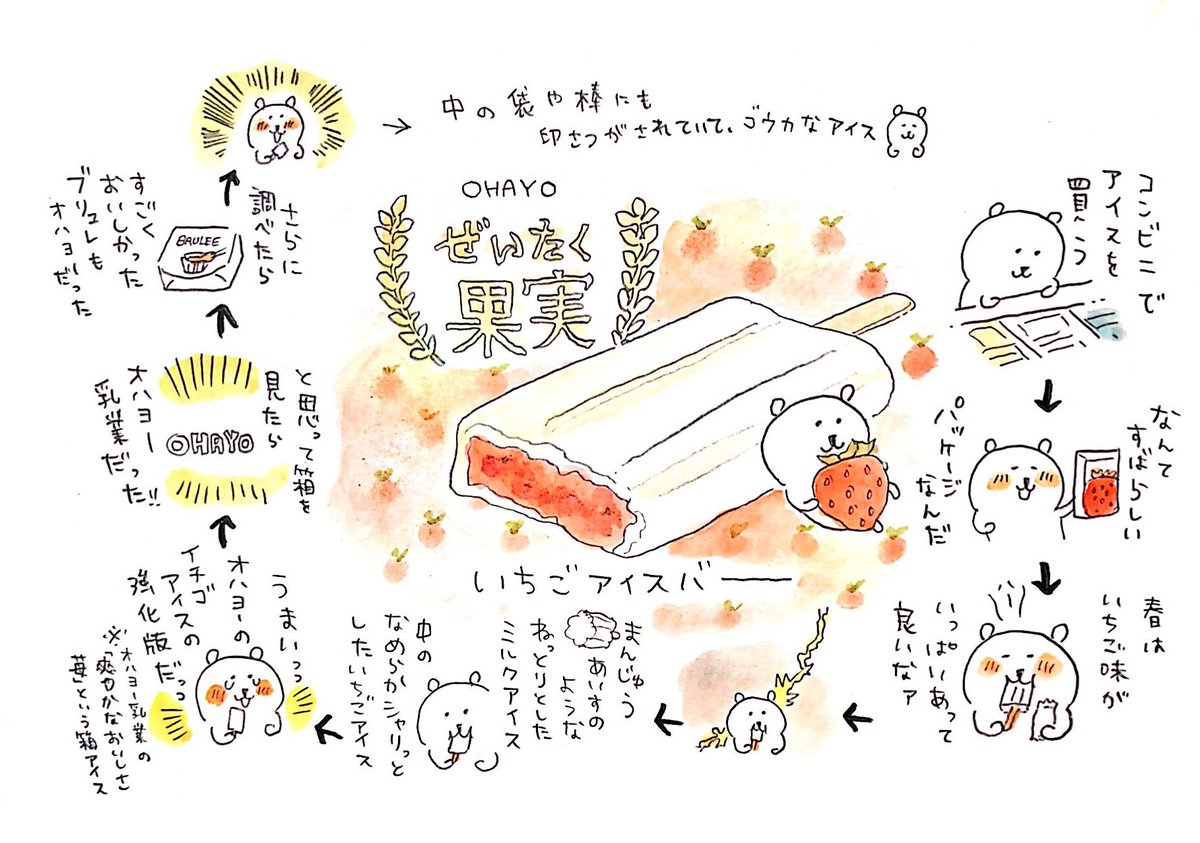 OHAYO
ぜいたく
果実
いちごアイスバー
コンビニで
アイスを
買う
なんて
すばらしい
パッケージ
なんだ
春は
いちご味が
いっぱいあって
良いなァ
まんじゅう
あいすの
ような
ねっとりとした
ミルクアイス
中の
なめらかシャリっと
したいちごアイス
うまいっっ
オハヨーの
イチゴ
アイスの
強化版だっっ
※オハヨー乳業の
「爽やかなおいしさ
苺」という箱アイス
と思って箱を
見たら
OHAYO
オハヨー
乳業だった!!
さらに
調べたら
BRULEE
すごく
おいしかった
ブリュレも
オハヨーだった
中の袋や棒にも
印さつがされていて、ゴウカなアイス